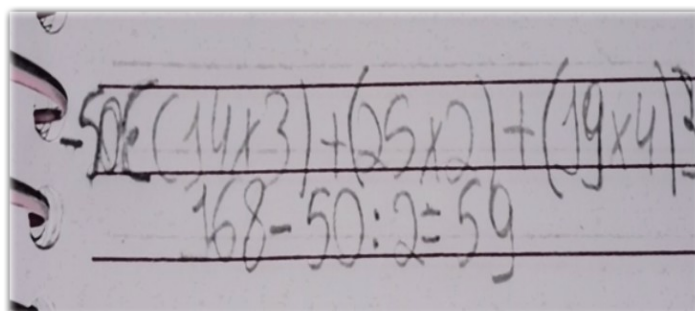 -50:(14x3)+(25x2)+(19x4)
168-50:2=59